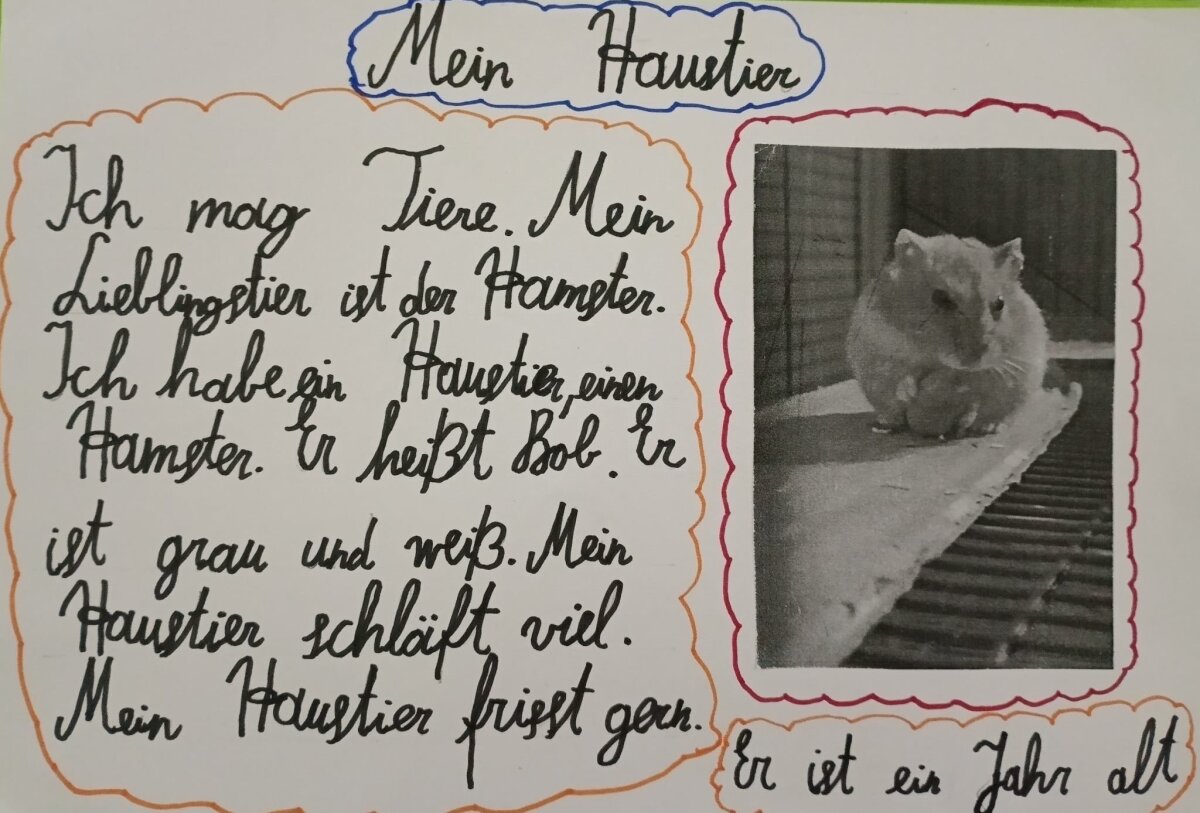 Mein Haustier
Ich mag Tiere. Mein
Lieblingstier ist der Hamster.
Ich habe ein Haustier, einen
Hamster. Er heißt Bob. Er
ist grau und weiß. Mein
Haustier schläft viel.
Mein Haustier frisst gern.
Er ist ein Jahr alt